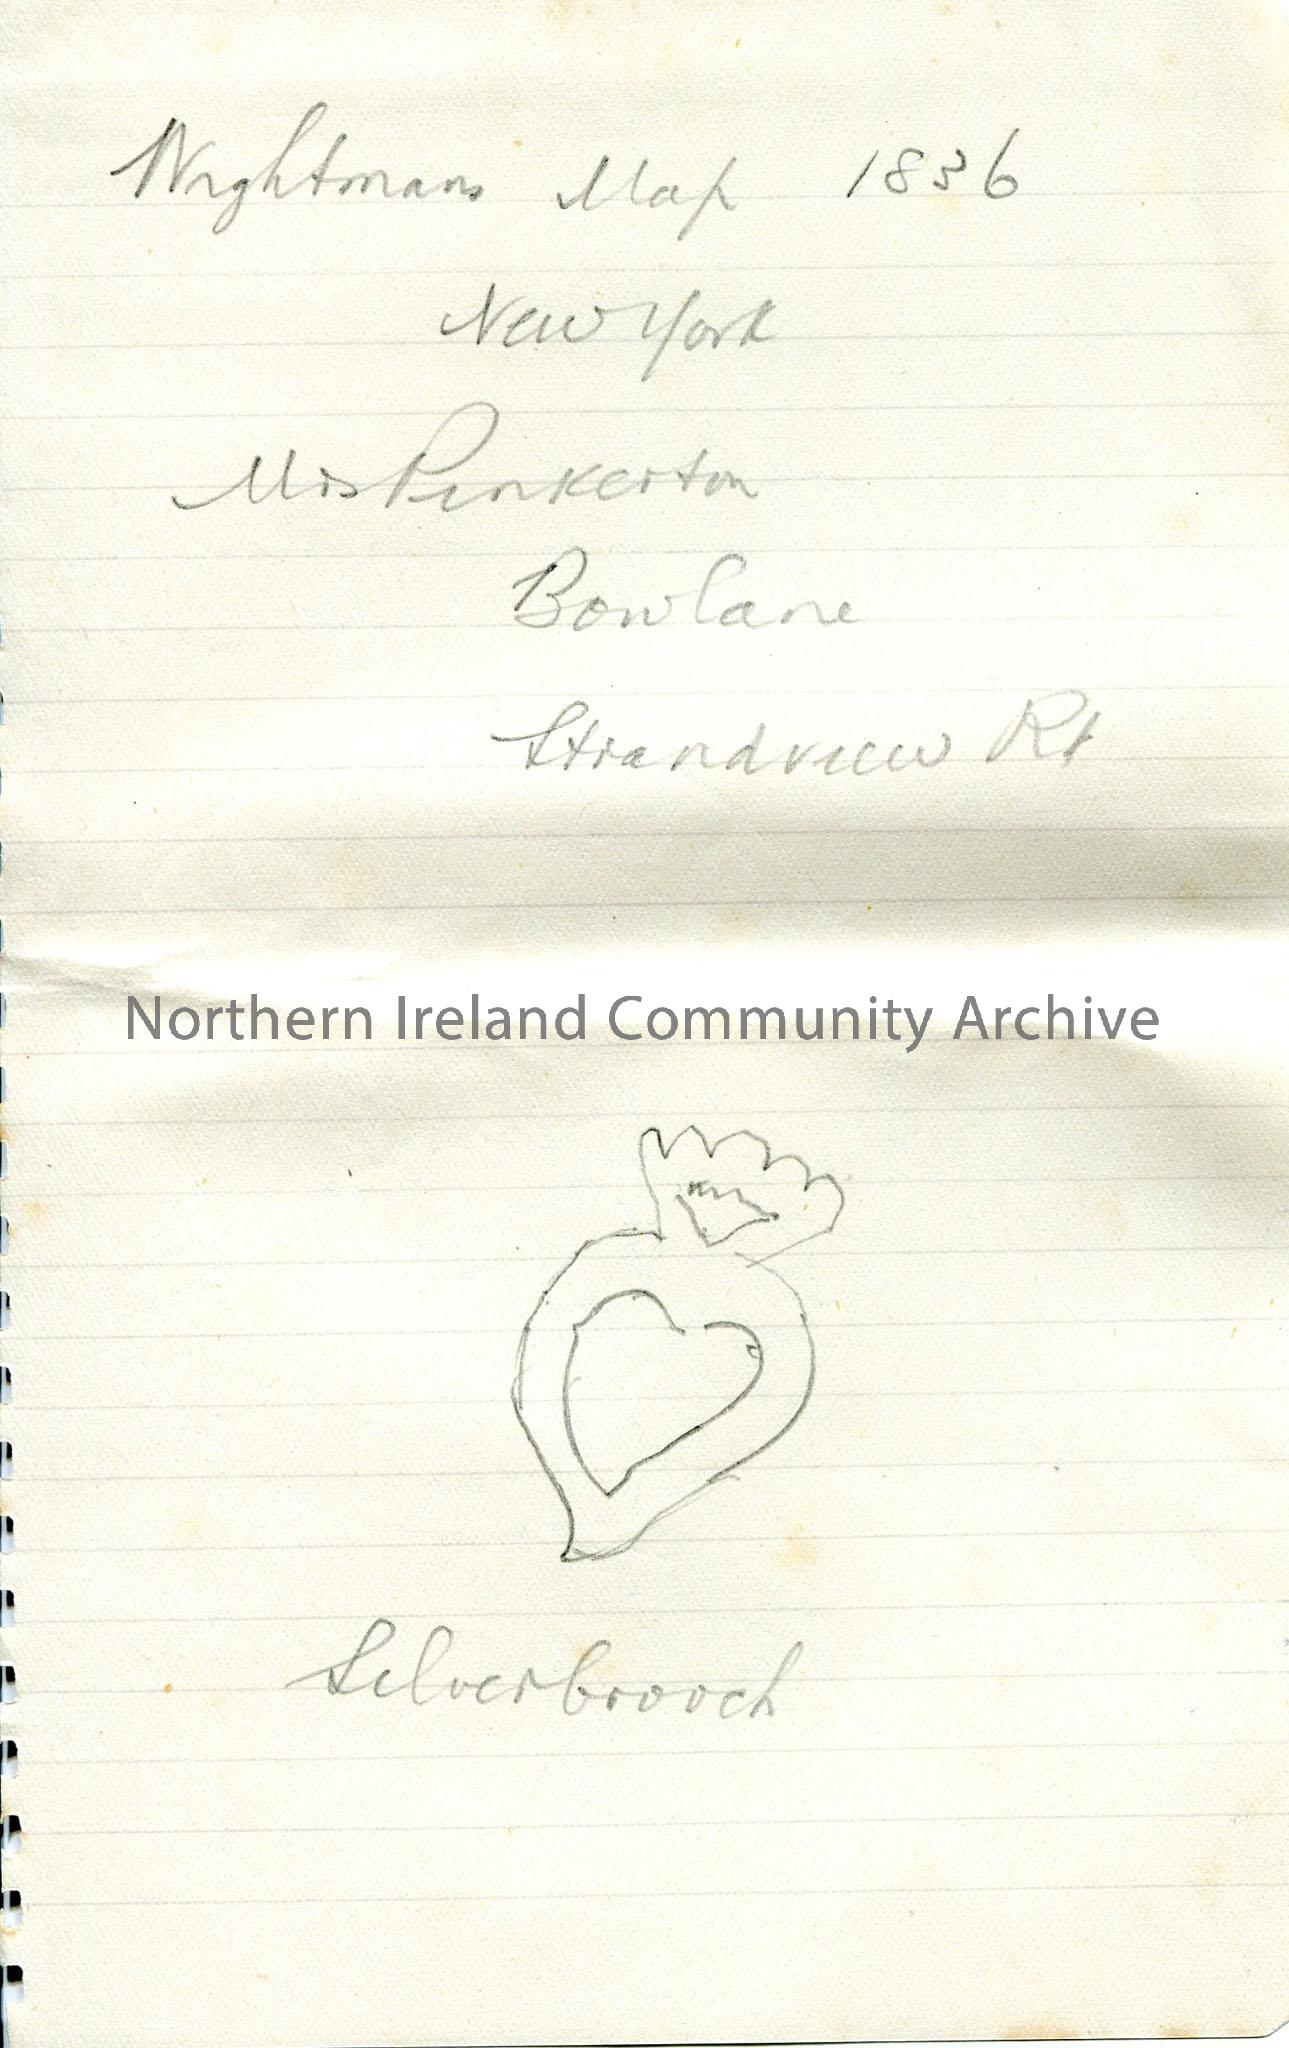 Wightmans Map 1836
New York
Mrs Pinkerton
Bowlane
Strandview Rd
Northern Ireland Community Archive
Silverbrooch